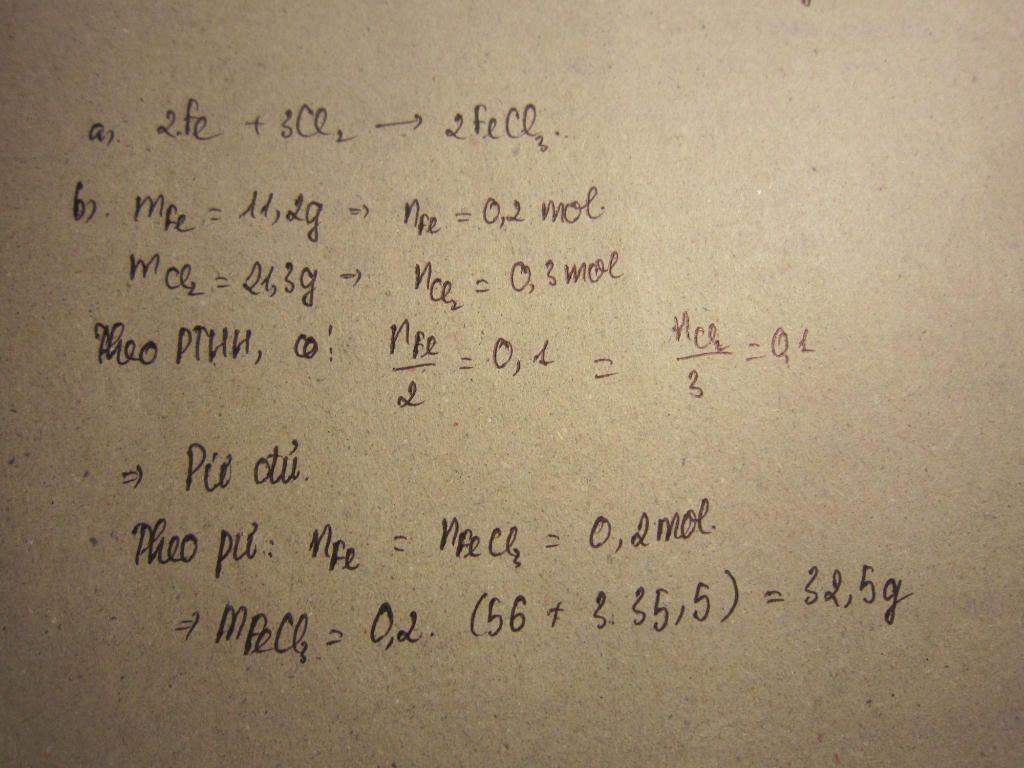 a). 2.Fe + 3Cl₂ → 2FeCl₃.
b). mFe = 11,2g => nFe = 0,2 mol.
mCl₂ = 21,3g => nCl₂ = 0,3mol
Theo PTHH, có: nFe/2 = 0,1 = nCl₂/3 = 0,1
=> Pứ đủ.
Theo pứ: nFe = nFeCl₃ = 0,2mol.
=> mFeCl₃ = 0,2. (56 + 3.35,5) = 32,5g